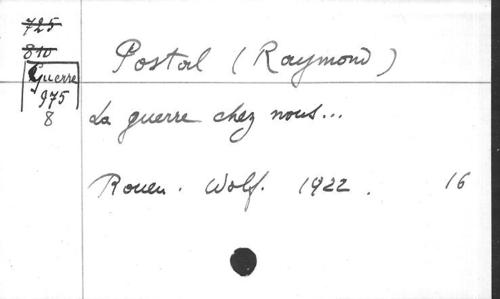 725
810
Guerre
975
8
Postal (Raymond)
La guerre chez nous...
Rouen. Wolf. 1922. 16